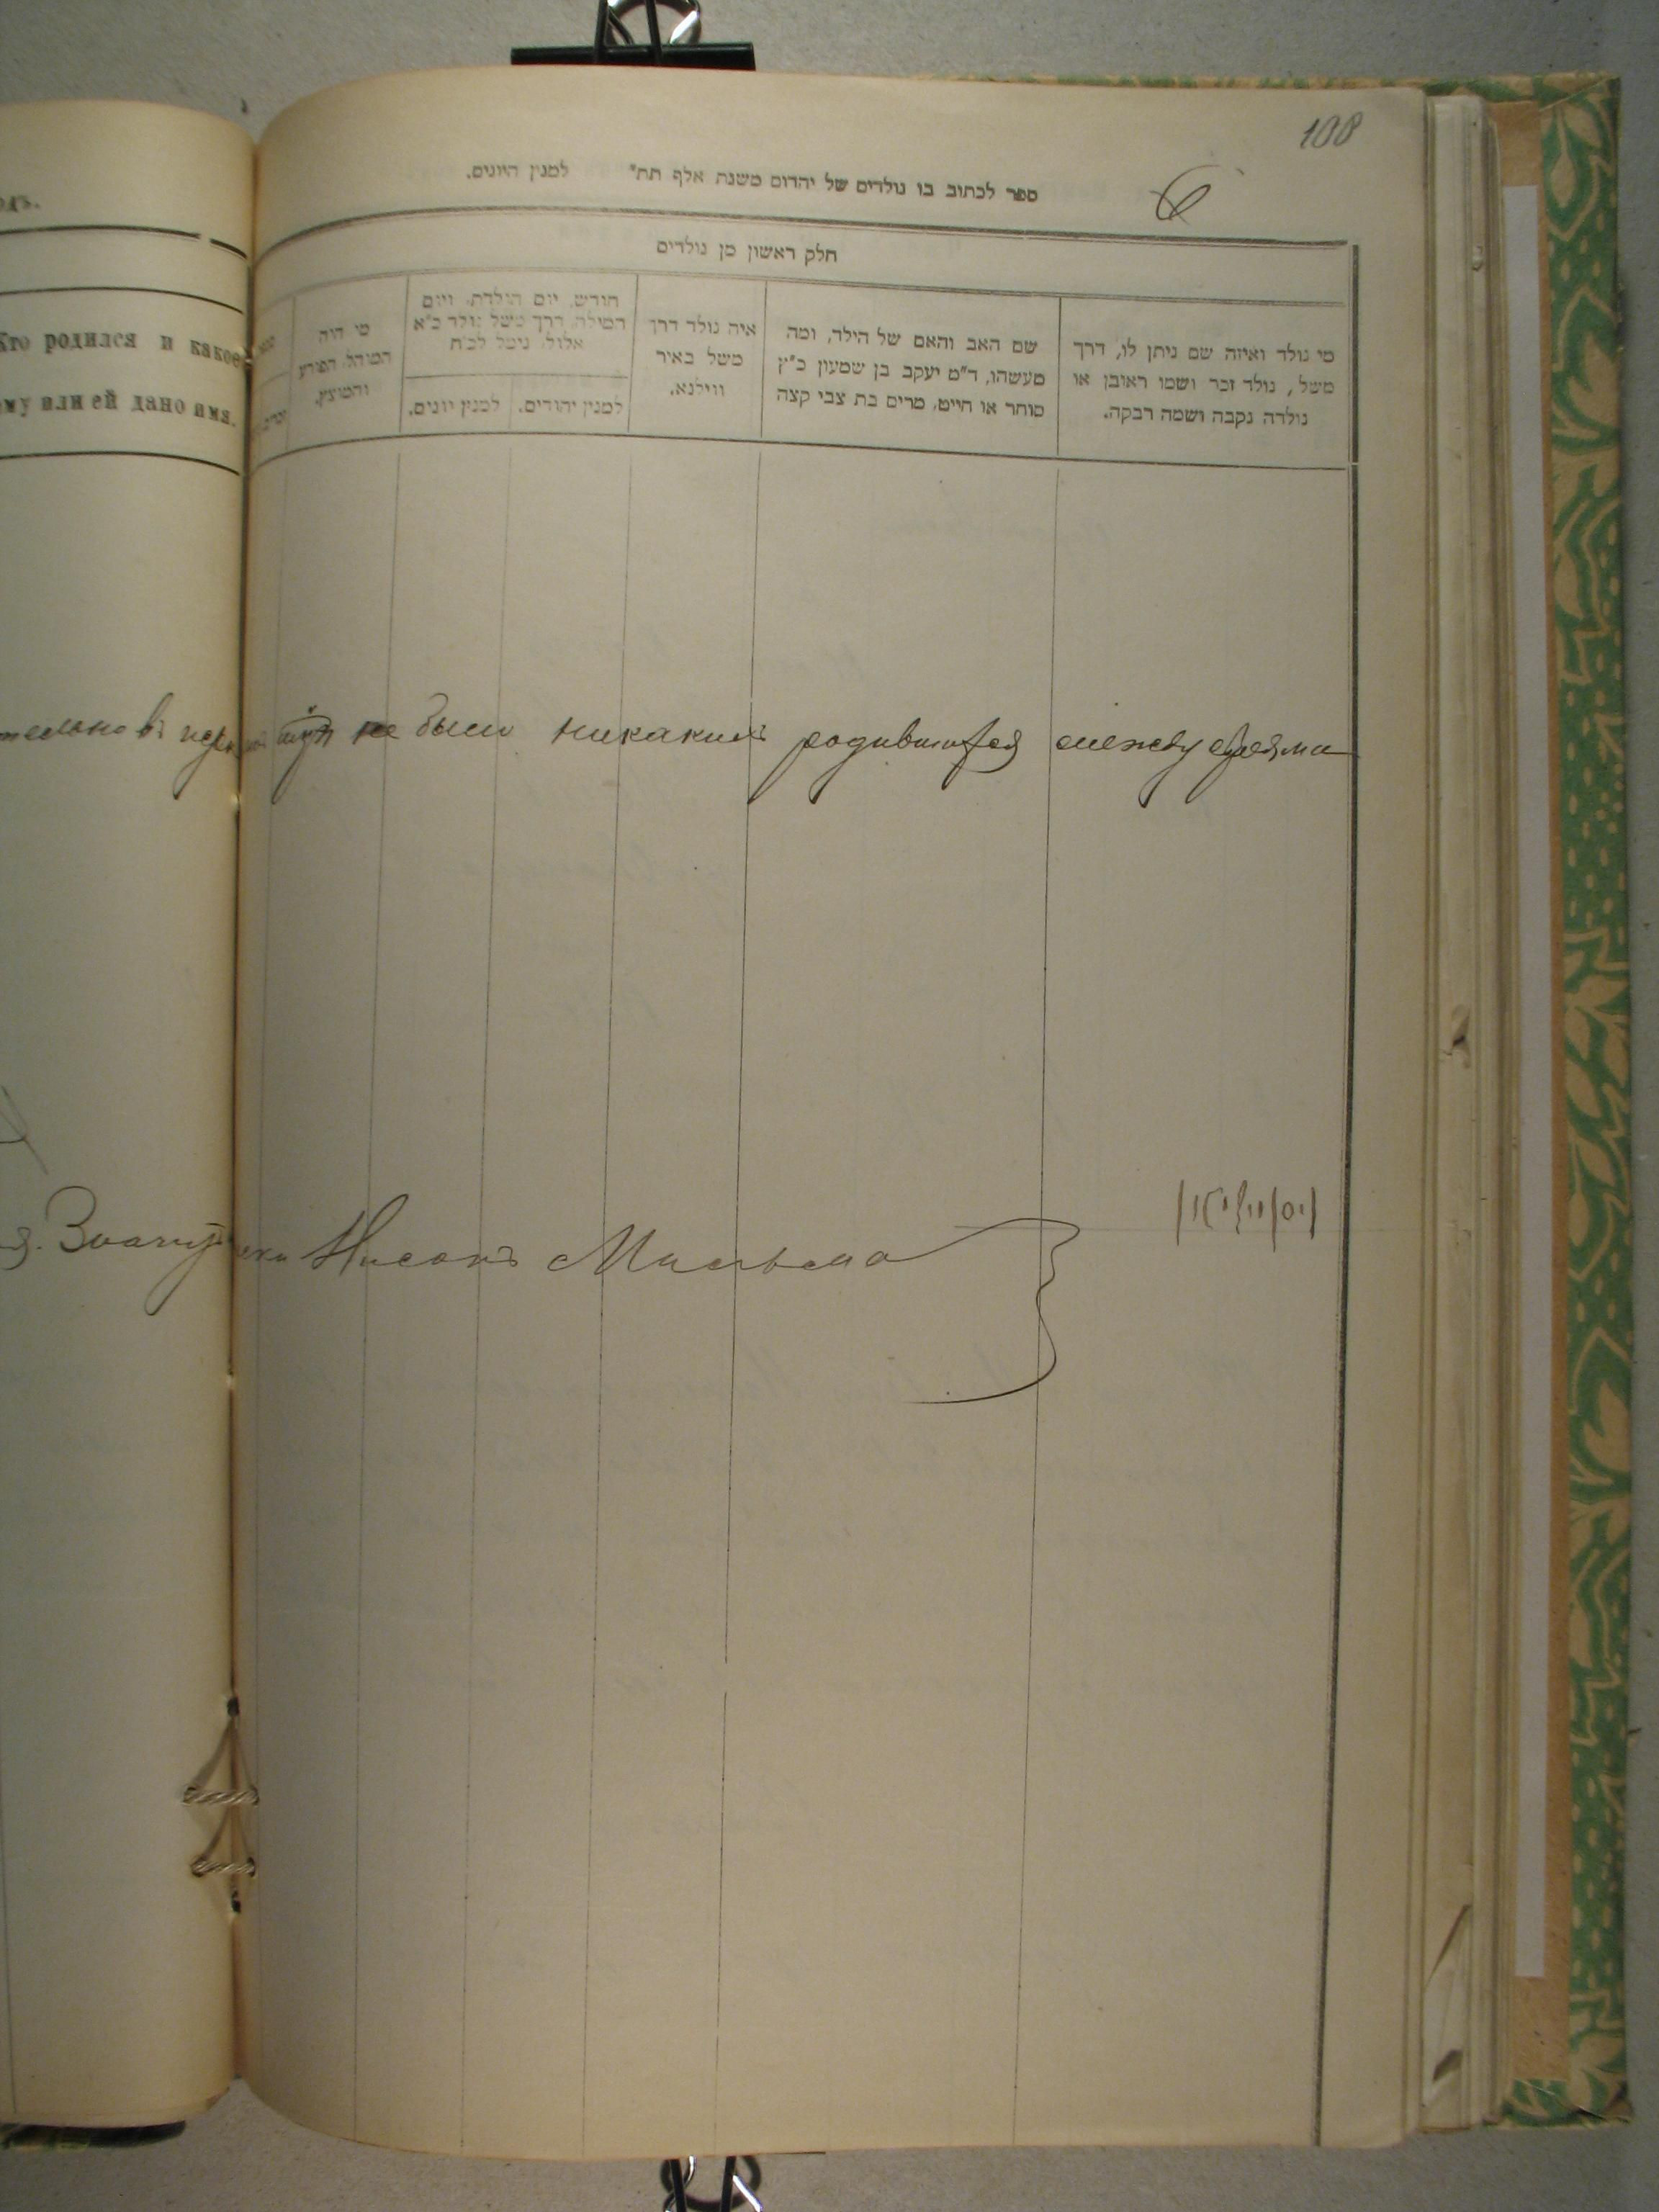 108
6
ספר לכתוב בו נולדים של יהדום משנת אלף תת״ למנין היונים.
חלק ראשון מן נולדים
מי נולד ואיזה שם ניתן לו, דרך
משל, נולד זכר ושמו ראובן או
נולדה נקבה ושמה רבקה.
שם האב והאם של הילד, ומה
מעשהו, ד״מ יעקב בן שמעון כ״ץ
סוחר או חייט, מרים בת צבי קצה
איה נולד דרך
משל באיר
ווילנא.
חודש, יום הולדת, ויום
המילה, דרך משל נולד כ״א
אלול, נימל לכ״ח
למנין יהודים.
למנין יונים.
מי היה
המוהל, הפורע
והמוצץ.
одъ.
Кто родился и какое
ему или ей дано имя.
не было никакихъ родившихся между евреями
Нисонъ